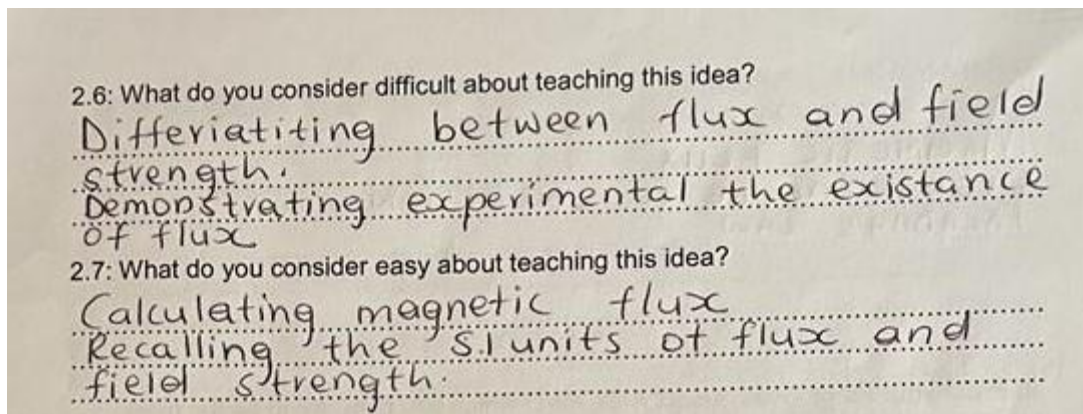 2.6: What do you consider difficult about teaching this idea?
Differiatiting between flux and field
strength.
Demonstrating experimental the existance
of flux
2.7: What do you consider easy about teaching this idea?
Calculating magnetic flux
Recalling the S.I units of flux and
field strength.